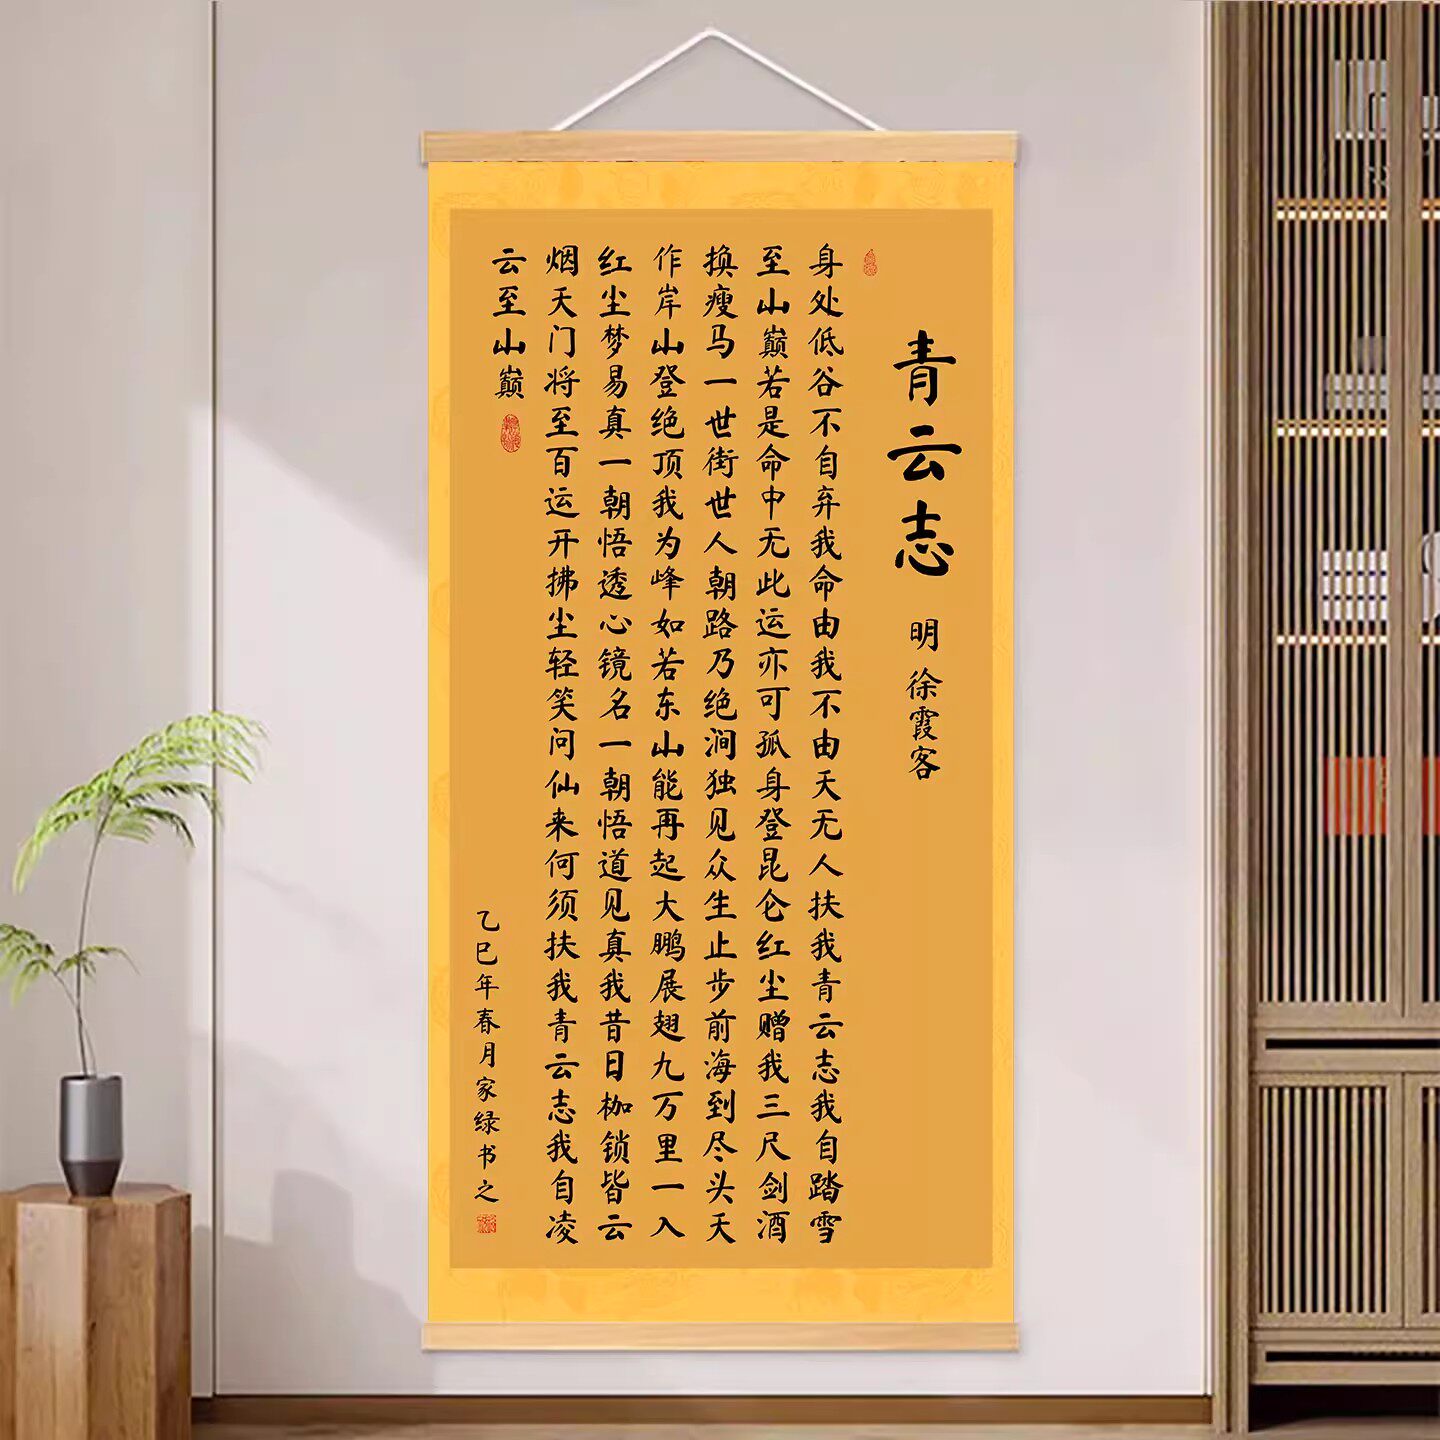 青云志 明 徐霞客
身处低谷不自弃我命由我不由天无人扶我青云志我自踏雪
至山巅若是命中无此运亦可孤身登昆仑红尘赠我三尺剑酒
换瘦马一世街世人朝路乃绝涧独见众生止步前海到尽头天
作岸山登绝顶我为峰如若东山能再起大鹏展翅九万里一入
红尘梦易真一朝悟透心镜名一朝悟道见真我昔日枷锁皆云
烟天门将至百运开拂尘轻笑问仙来何须扶我青云志我自凌
云至山巅
乙巳年春月家绿书之